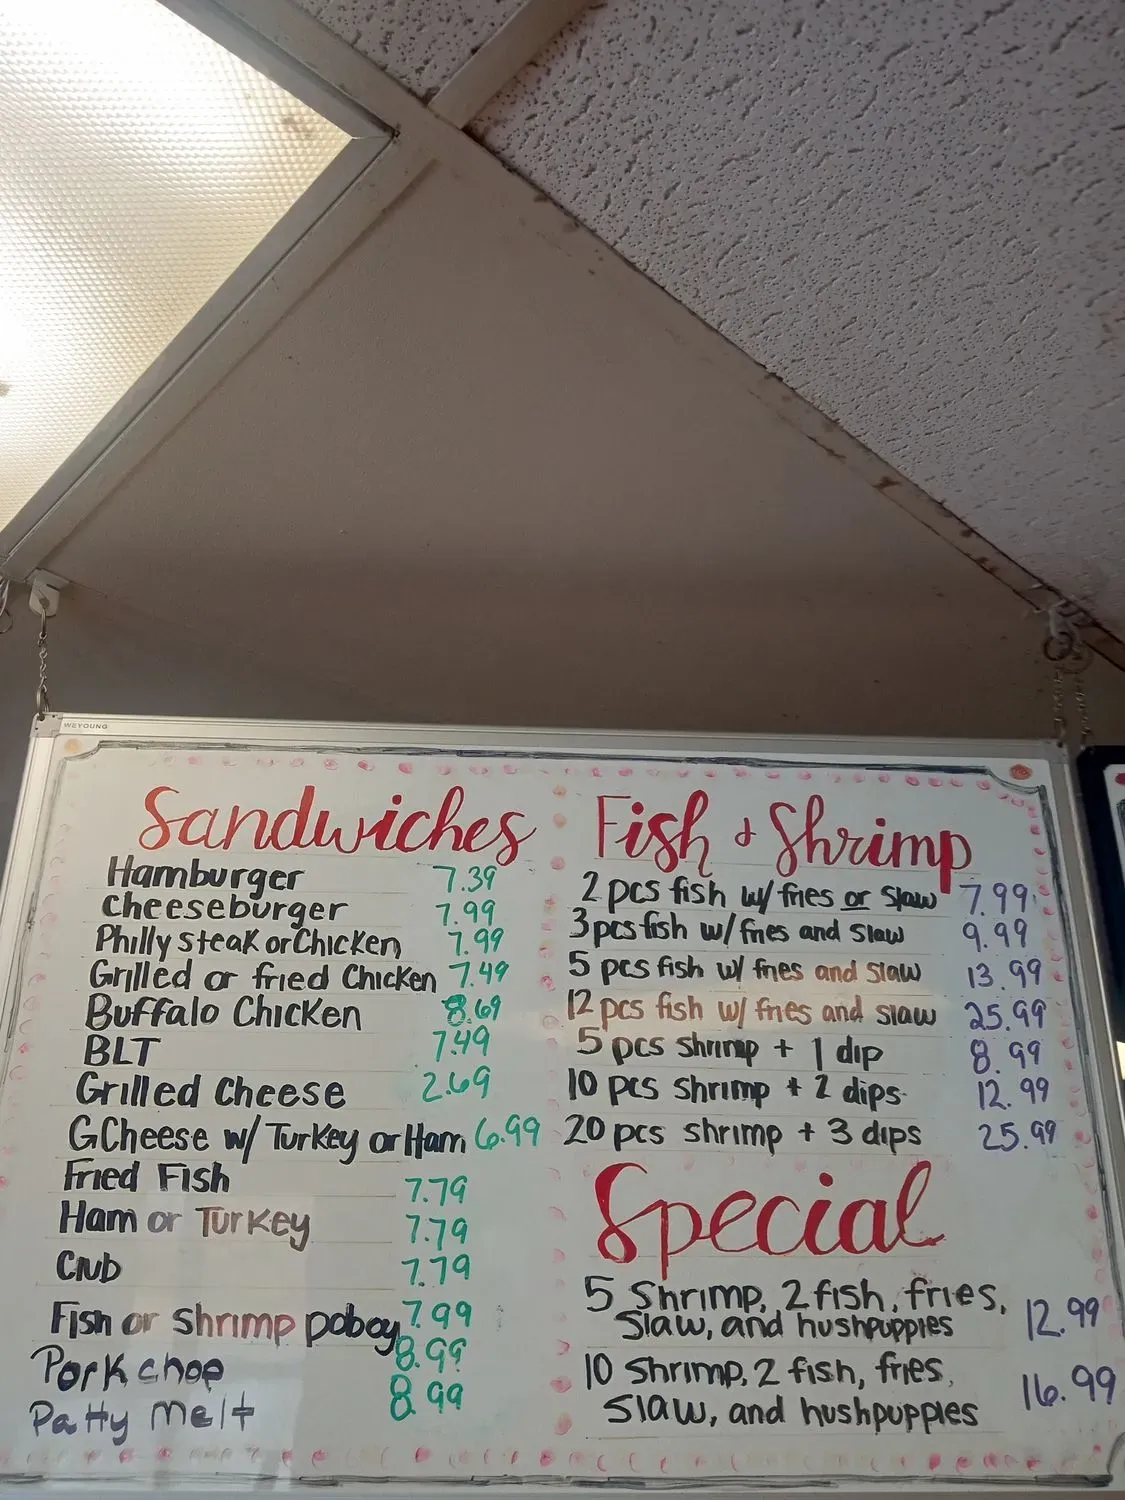 WEYOUNG
Sandwiches
Hamburger 7.39
Cheeseburger 7.99
Philly steak or Chicken 7.99
Grilled or fried Chicken 7.49
Buffalo Chicken 8.69
BLT 7.49
Grilled Cheese 2.69
GCheese w/ Turkey or Ham 6.99
Fried Fish 7.79
Ham or Turkey 7.79
Club 7.79
Fish or shrimp poboy 7.99
Pork chop 8.99
Patty Melt 8.99
Fish & Shrimp
2 pcs fish w/ fries or slaw 7.99
3 pcs fish w/ fries and slaw 9.99
5 pcs fish w/ fries and slaw 13.99
12 pcs fish w/ fries and slaw 25.99
5 pcs shrimp + 1 dip 8.99
10 pcs shrimp + 2 dips 12.99
20 pcs shrimp + 3 dips 25.99
Special
5 Shrimp, 2 fish, fries,
Slaw, and hushpuppies 12.99
10 Shrimp, 2 fish, fries,
Slaw, and hushpuppies 16.99